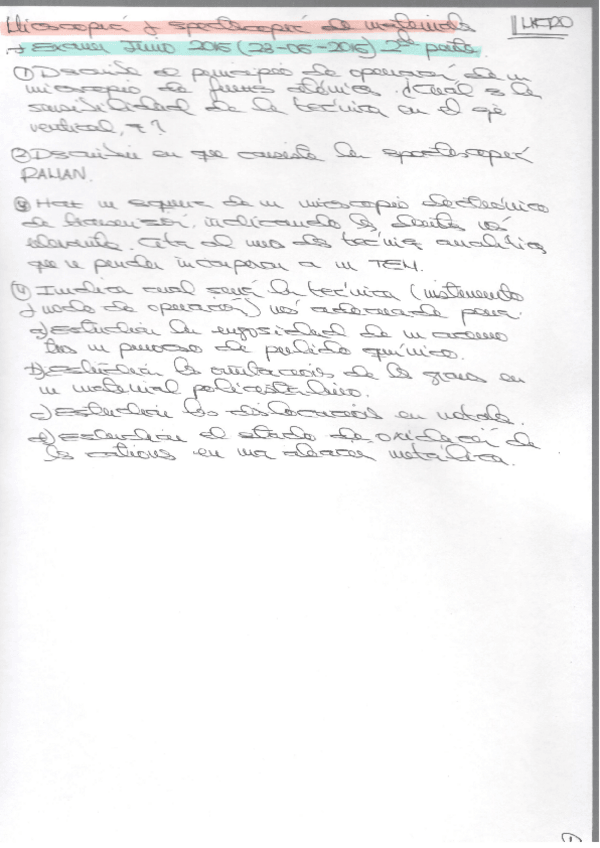 Microscopía y espectroscopía de materiales
→ Examen Junio 2015 (23-06-2015) 2ª parte.
① Describe el principio de operación de un
microscopio de fuerzas atómicas. ¿Cuál es la
sensibilidad de la técnica en el eje
vertical, z?
② Describir en que consiste la espectroscopía
RAMAN.
③ Hacer un esquema de un microscopio electrónico
de transmisión, indicando los distintos
elementos. Cita al menos dos técnicas analíticas
que se pueden incorporar a un TEM.
④ Indica cual sería la técnica (instrumento
y modo de operación) más adecuada para:
a) estudiar la rugosidad de un acero
tras un proceso de pulido químico.
b) estudiar las orientaciones de los granos en
un material policristalino.
c) estudiar las dislocaciones en metales.
e) estudiar el estado de oxidación de
los cationes en una aleación metálica.
①